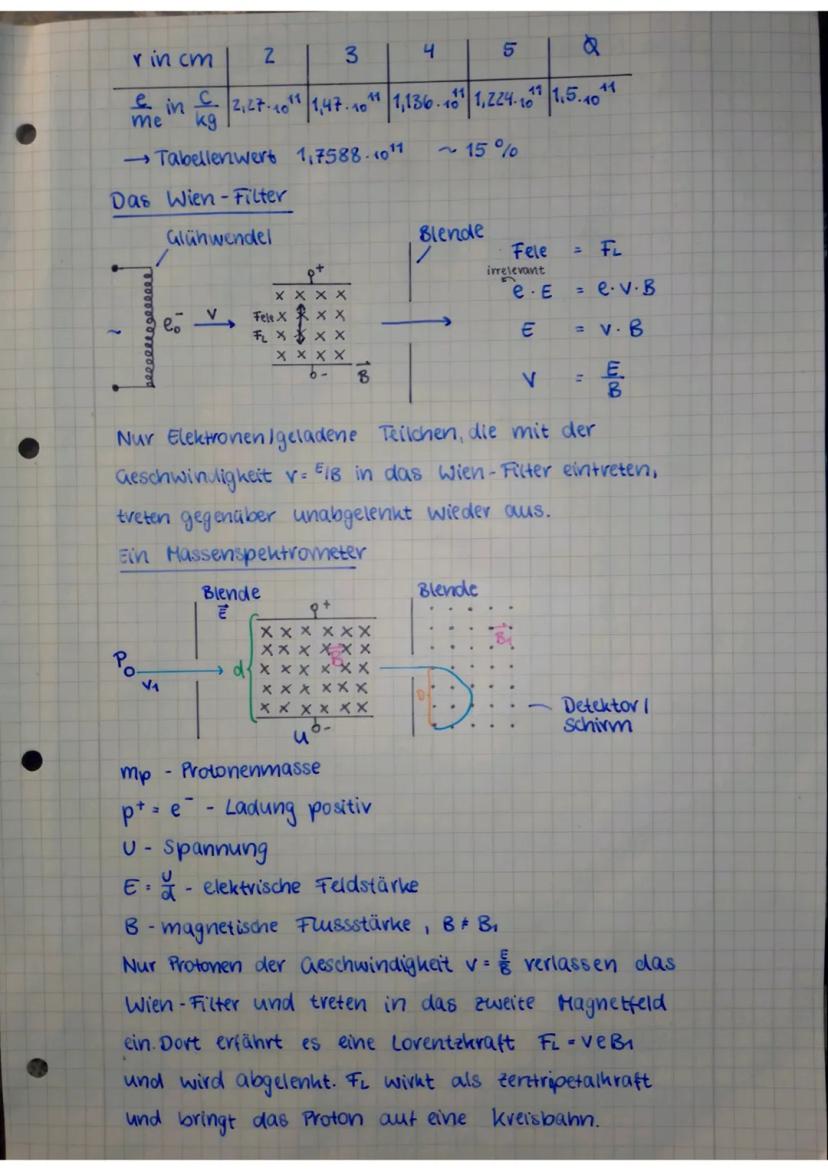 r in cm | 2 | 3 | 4 | 5 | Q
e/me in C/kg | 2,27·10¹¹ | 1,47·10¹¹ | 1,136·10¹¹ | 1,224·10¹¹ | 1,5·10¹¹
→ Tabellenwert 1,7588·10¹¹ ~ 15 %
Das Wien-Filter
Glühwendel
Blende
~ e₀⁻ v
+
Fele
FL
- B⃗
Fele = FL
irrelevant
e · E = e · v · B
E = v · B
v = E/B
Nur Elektronen/geladene Teilchen, die mit der
Geschwindigkeit v = E/B in das Wien-Filter eintreten,
treten gegenüber unabgelenkt wieder aus.
Ein Massenspektrometer
Blende
Blende
E⃗
+
P₀
v₁
d
B⃗
B⃗₁
D
U -
Detektor/
schirm
mp - Protonenmasse
p⁺ = e⁻ - Ladung positiv
U - Spannung
E = U/d - elektrische Feldstärke
B - magnetische Flussstärke, B ≠ B₁
Nur Protonen der Geschwindigkeit v = E/B verlassen das
Wien-Filter und treten in das zweite Magnetfeld
ein. Dort erfährt es eine Lorentzkraft FL = veB₁
und wird abgelenkt. FL wirkt als Zentripetalkraft
und bringt das Proton auf eine Kreisbahn.